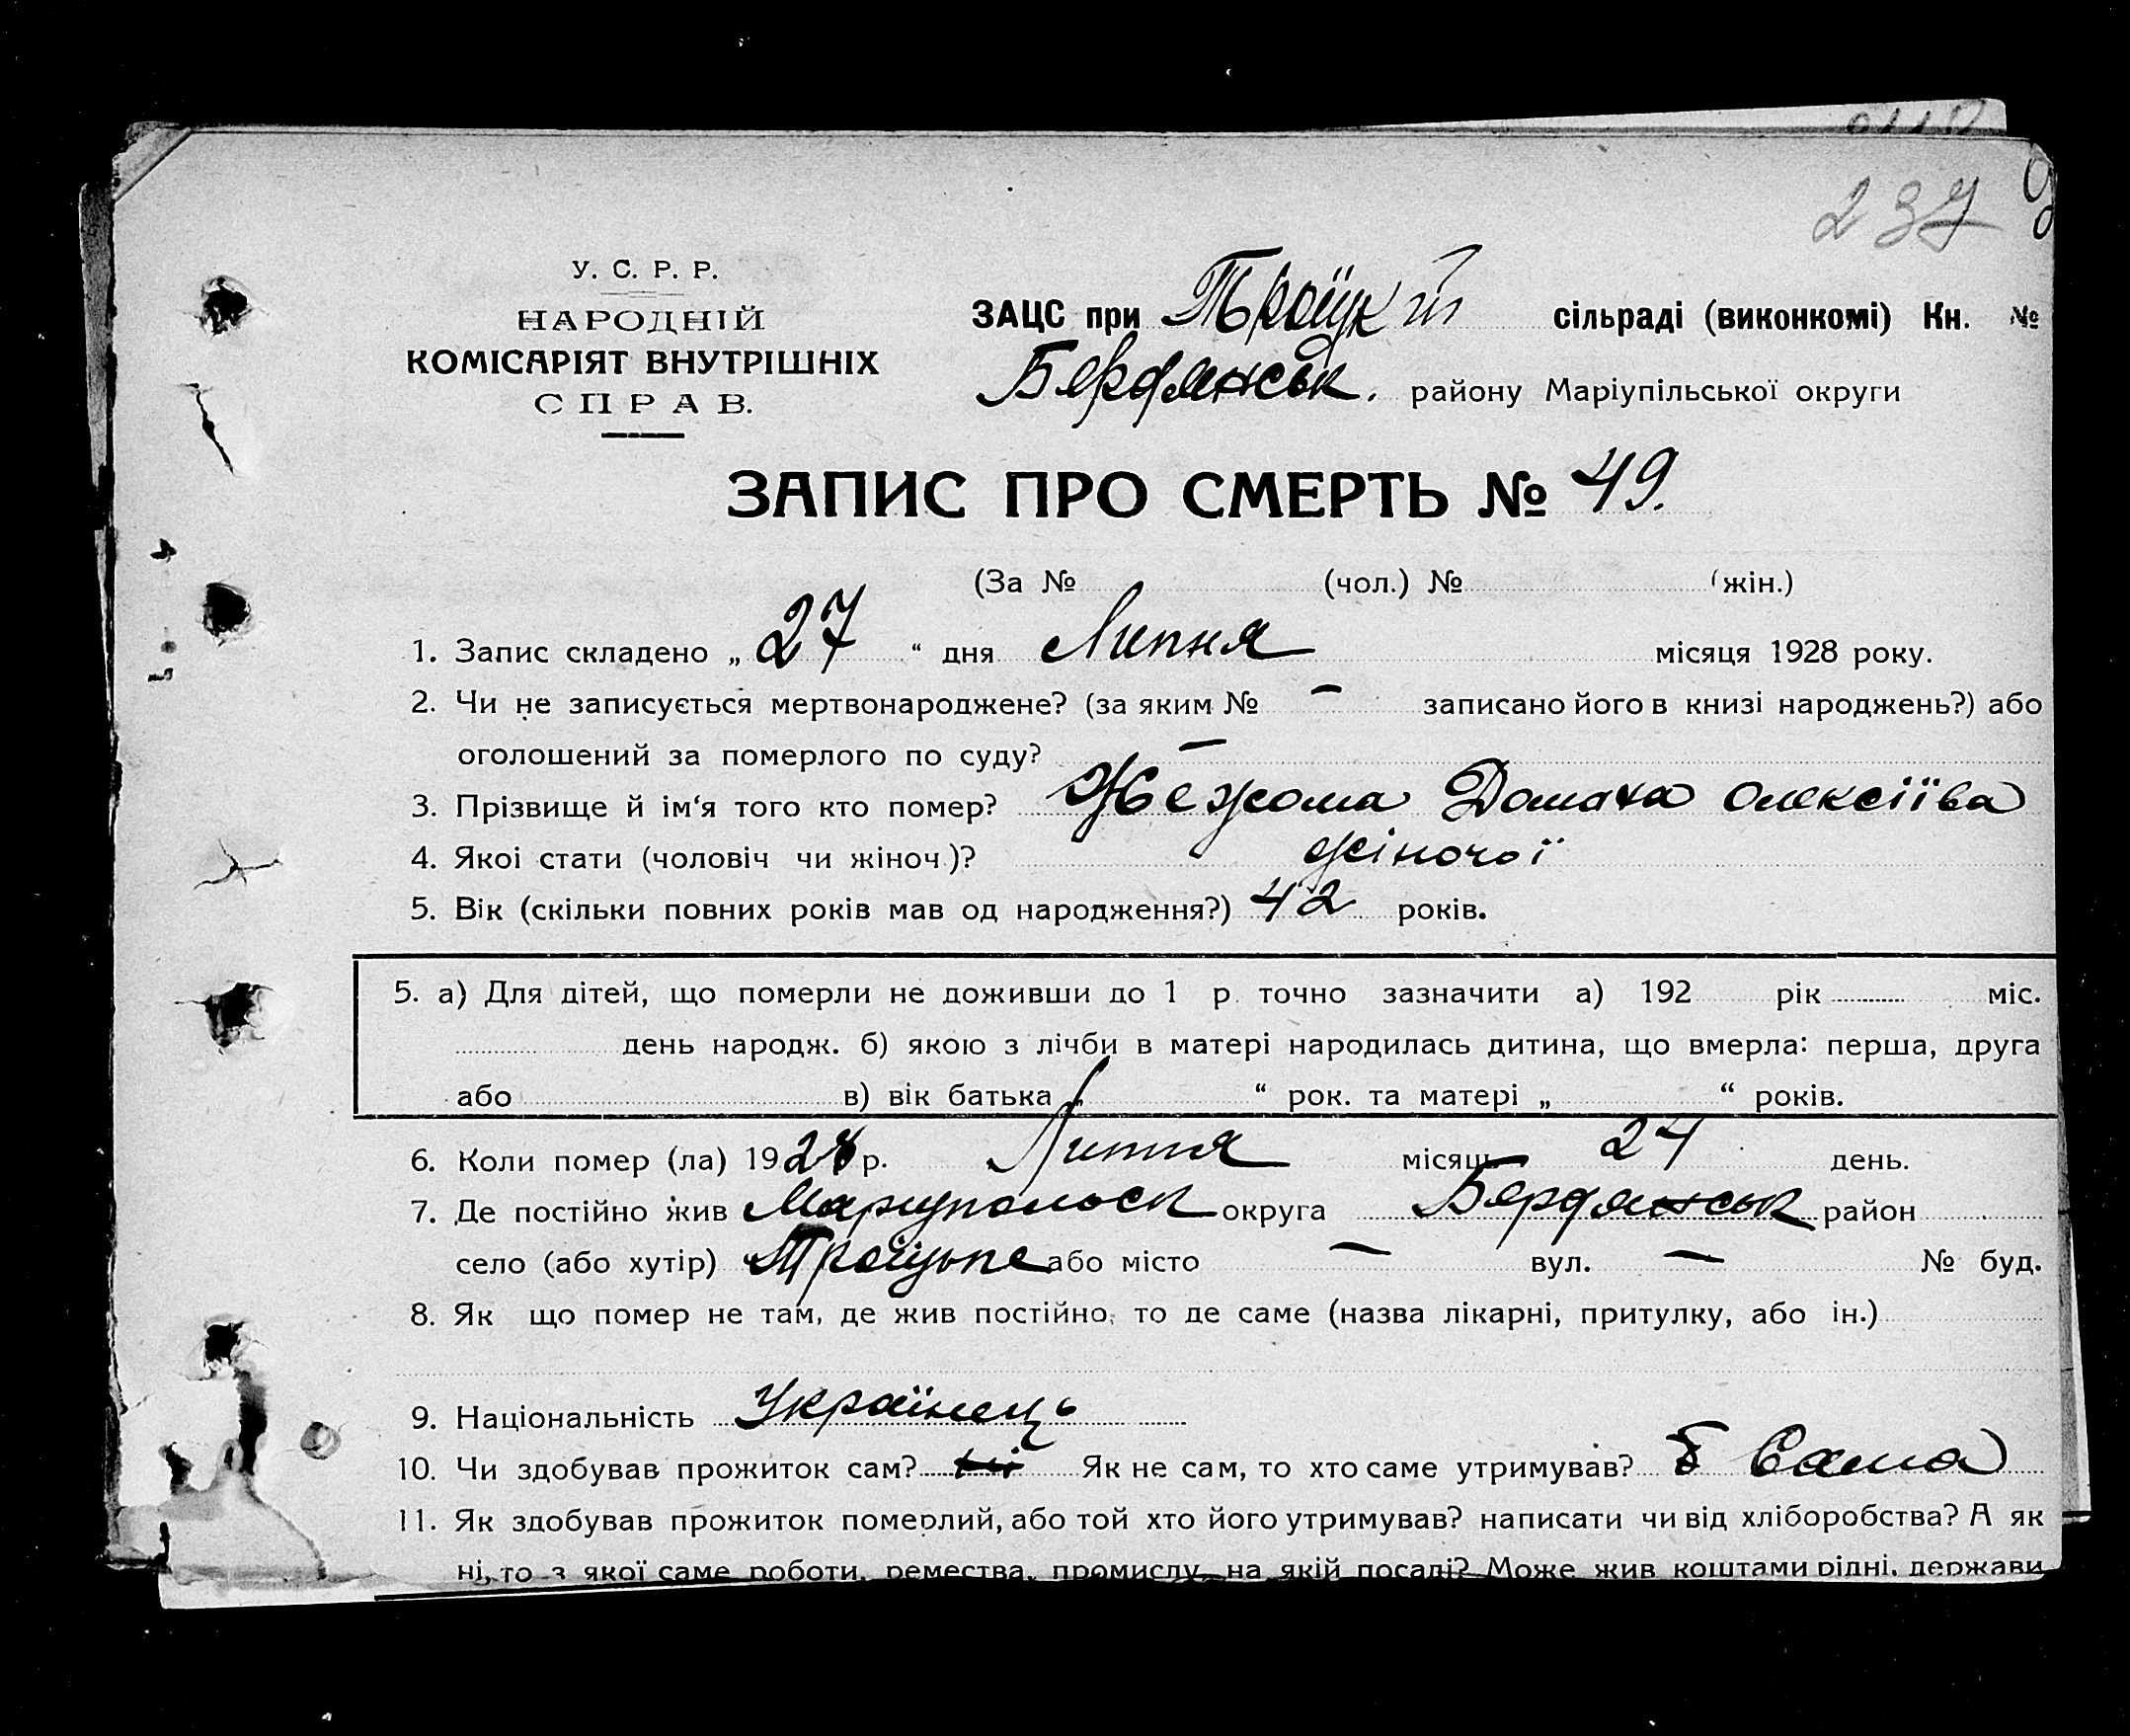 237
У. С. Р. Р.
НАРОДНІЙ
КОМІСАРІЯТ ВНУТРІШНІХ
СПРАВ.
ЗАЦС при Троїцкій сільраді (виконкомі) Кн. №
Бердянськ. району Маріупільської округи
ЗАПИС ПРО СМЕРТЬ № 49.
(За № (чол.) № (жін.)
1. Запис складено „ 27 “ дня Липня місяця 1928 року.
2. Чи не записується мертвонароджене? (за яким № – записано його в книзі народжень?) або
оголошений за померлого по суду? –
3. Прізвище й ім‘я того кто помер? Домаха Олексіїва
4. Якоі стати (чоловіч чи жіноч.)? жіночої
5. Вік (скільки повних років мав од народження?) 42 років.
5. а) Для дітей, що померли не доживши до 1 р. точно зазначити а) 192 рік міс.
день народж. б) якою з лічби в матері народилась дитина, що вмерла: перша, друга
або в) вік батька „ “ рок. та матері „ “ років.
6. Коли помер (ла) 1928 р. Липня місяць день.
7. Де постійно жив Мариупольськ округа Бердянськ район
село (або хутір) Троїцьке або місто – вул. – № буд.
8. Як що помер не там, де жив постійно, то де саме (назва лікарні, притулку, або ін.)
9. Національність Українець
10. Чи здобував прожиток сам? Як не сам, то хто саме утримував? Сама
11. Як здобував прожиток померлий, або той хто його утримував? написати чи від хліборобства? А як
ні, то з якої саме роботи, ремества, промислу, на якій посаді? Може жив коштами рідні, держави